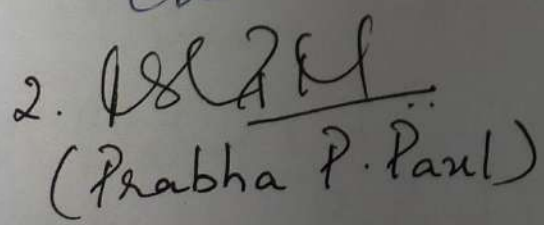 2.
(Prabha P. Paul)